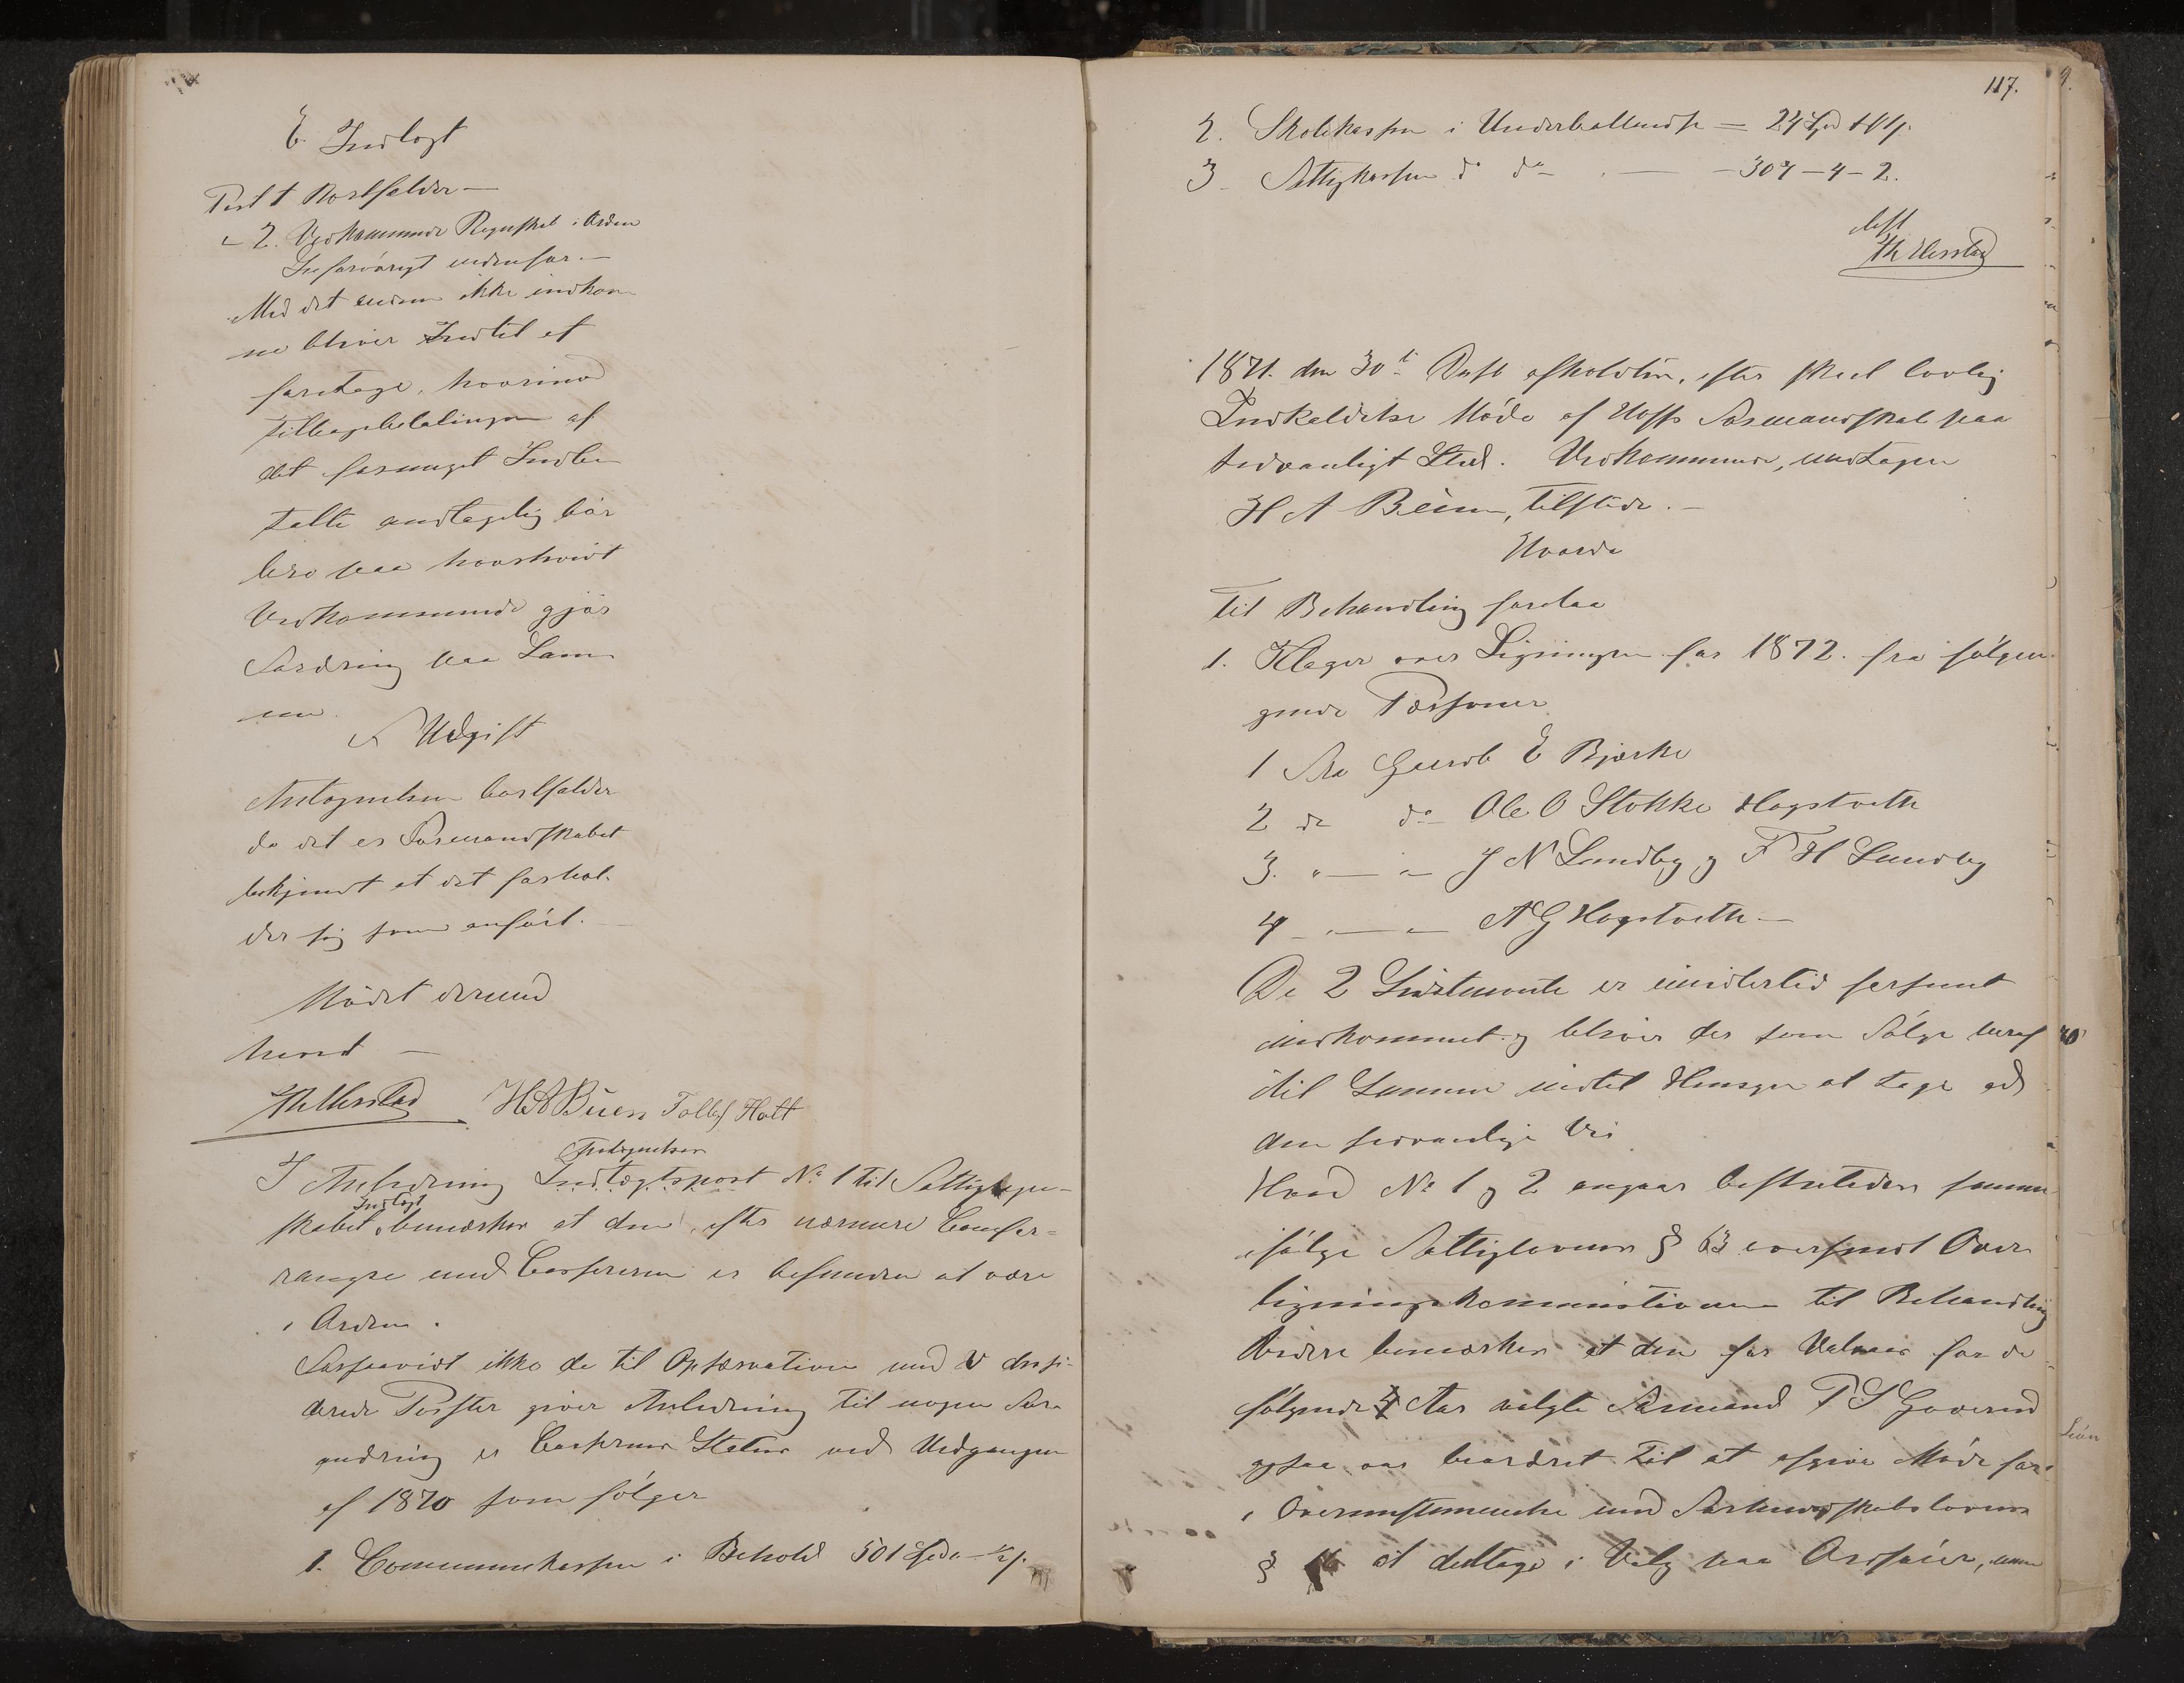 E. Indtægt
Post 1 Bortfalder —
" 2. Vedkommende Regnskab i Orden
Indførsigt indenfor. —
Med det endnu ikke indkom
ne bliver Indtil at
foretage, hvorimod
Tilbagebetalingen af
det formeget Indbe
talte antagelig bør
bero paa hvorhvidt
Vedkommende gjør
Fordring paa Sam
me.
F Udgift
Antegnelsen bortfalder
da det er Formandskabet
bekjendt at det forhol-
der sig som anført. —
Mødet dermed
hævet —
H A Buen Tollef Holt
Antegnelsen
I Anledning Indtægtspost No 1 til Fattigregn-
Indtægt
skabet, bemærkes at den, efter nærmere Confer-
rangse med Casereren er befunden at være
i Orden.
Forsaavidt ikke de til Observation med V desi-
derede Poster giver Anledning til nogen For
andring er Cassernes Status ved Udgangen
af 1870 som følger
1. Communekassen i Behold 501 Spd. — ½ s.
117.
2. Skolekassen i Underballandse = 24 Spd
3 — Fattigkassen do do — 307 — 4 — 2.
1871. den 30te afholdtes, efter skeet lovlig
Indkaldelse Møde af Formandskab paa
sedvanligt Sted. Vedkommende, undtagen
H A Buen, tilstede. —
Hvorda
Til Behandling foretaa
1. Klager over Ligningen for 1872. fra følgen
gende Personer
1 Fra Gaardb E Bjerke
2 do do Ole O Stokke Hogstvethe
3. " — " J N Lundby og F H Lundby
4 — " — " A G Hogstvethe —
De 2 Sidstnevnte er imidlertid forsent
indkommet og bliver der som Følge heraf
til Samme intet Hensyn at tage ad
den sedvanlige Vei
Hvad No 1 og 2 angaar besluttedes samme
ifølge Fattiglovens § 63 oversendt Over
ligningskommisionen til Behandling
Videre bemærkes at den for Valuaar for de
følgende 4 Aar valgte Formand
ogsaa var beordret til at afgive Møde for
i Overensstemmelse med Formandskabslovens
§ at deltage i Valg paa Ordfører, men